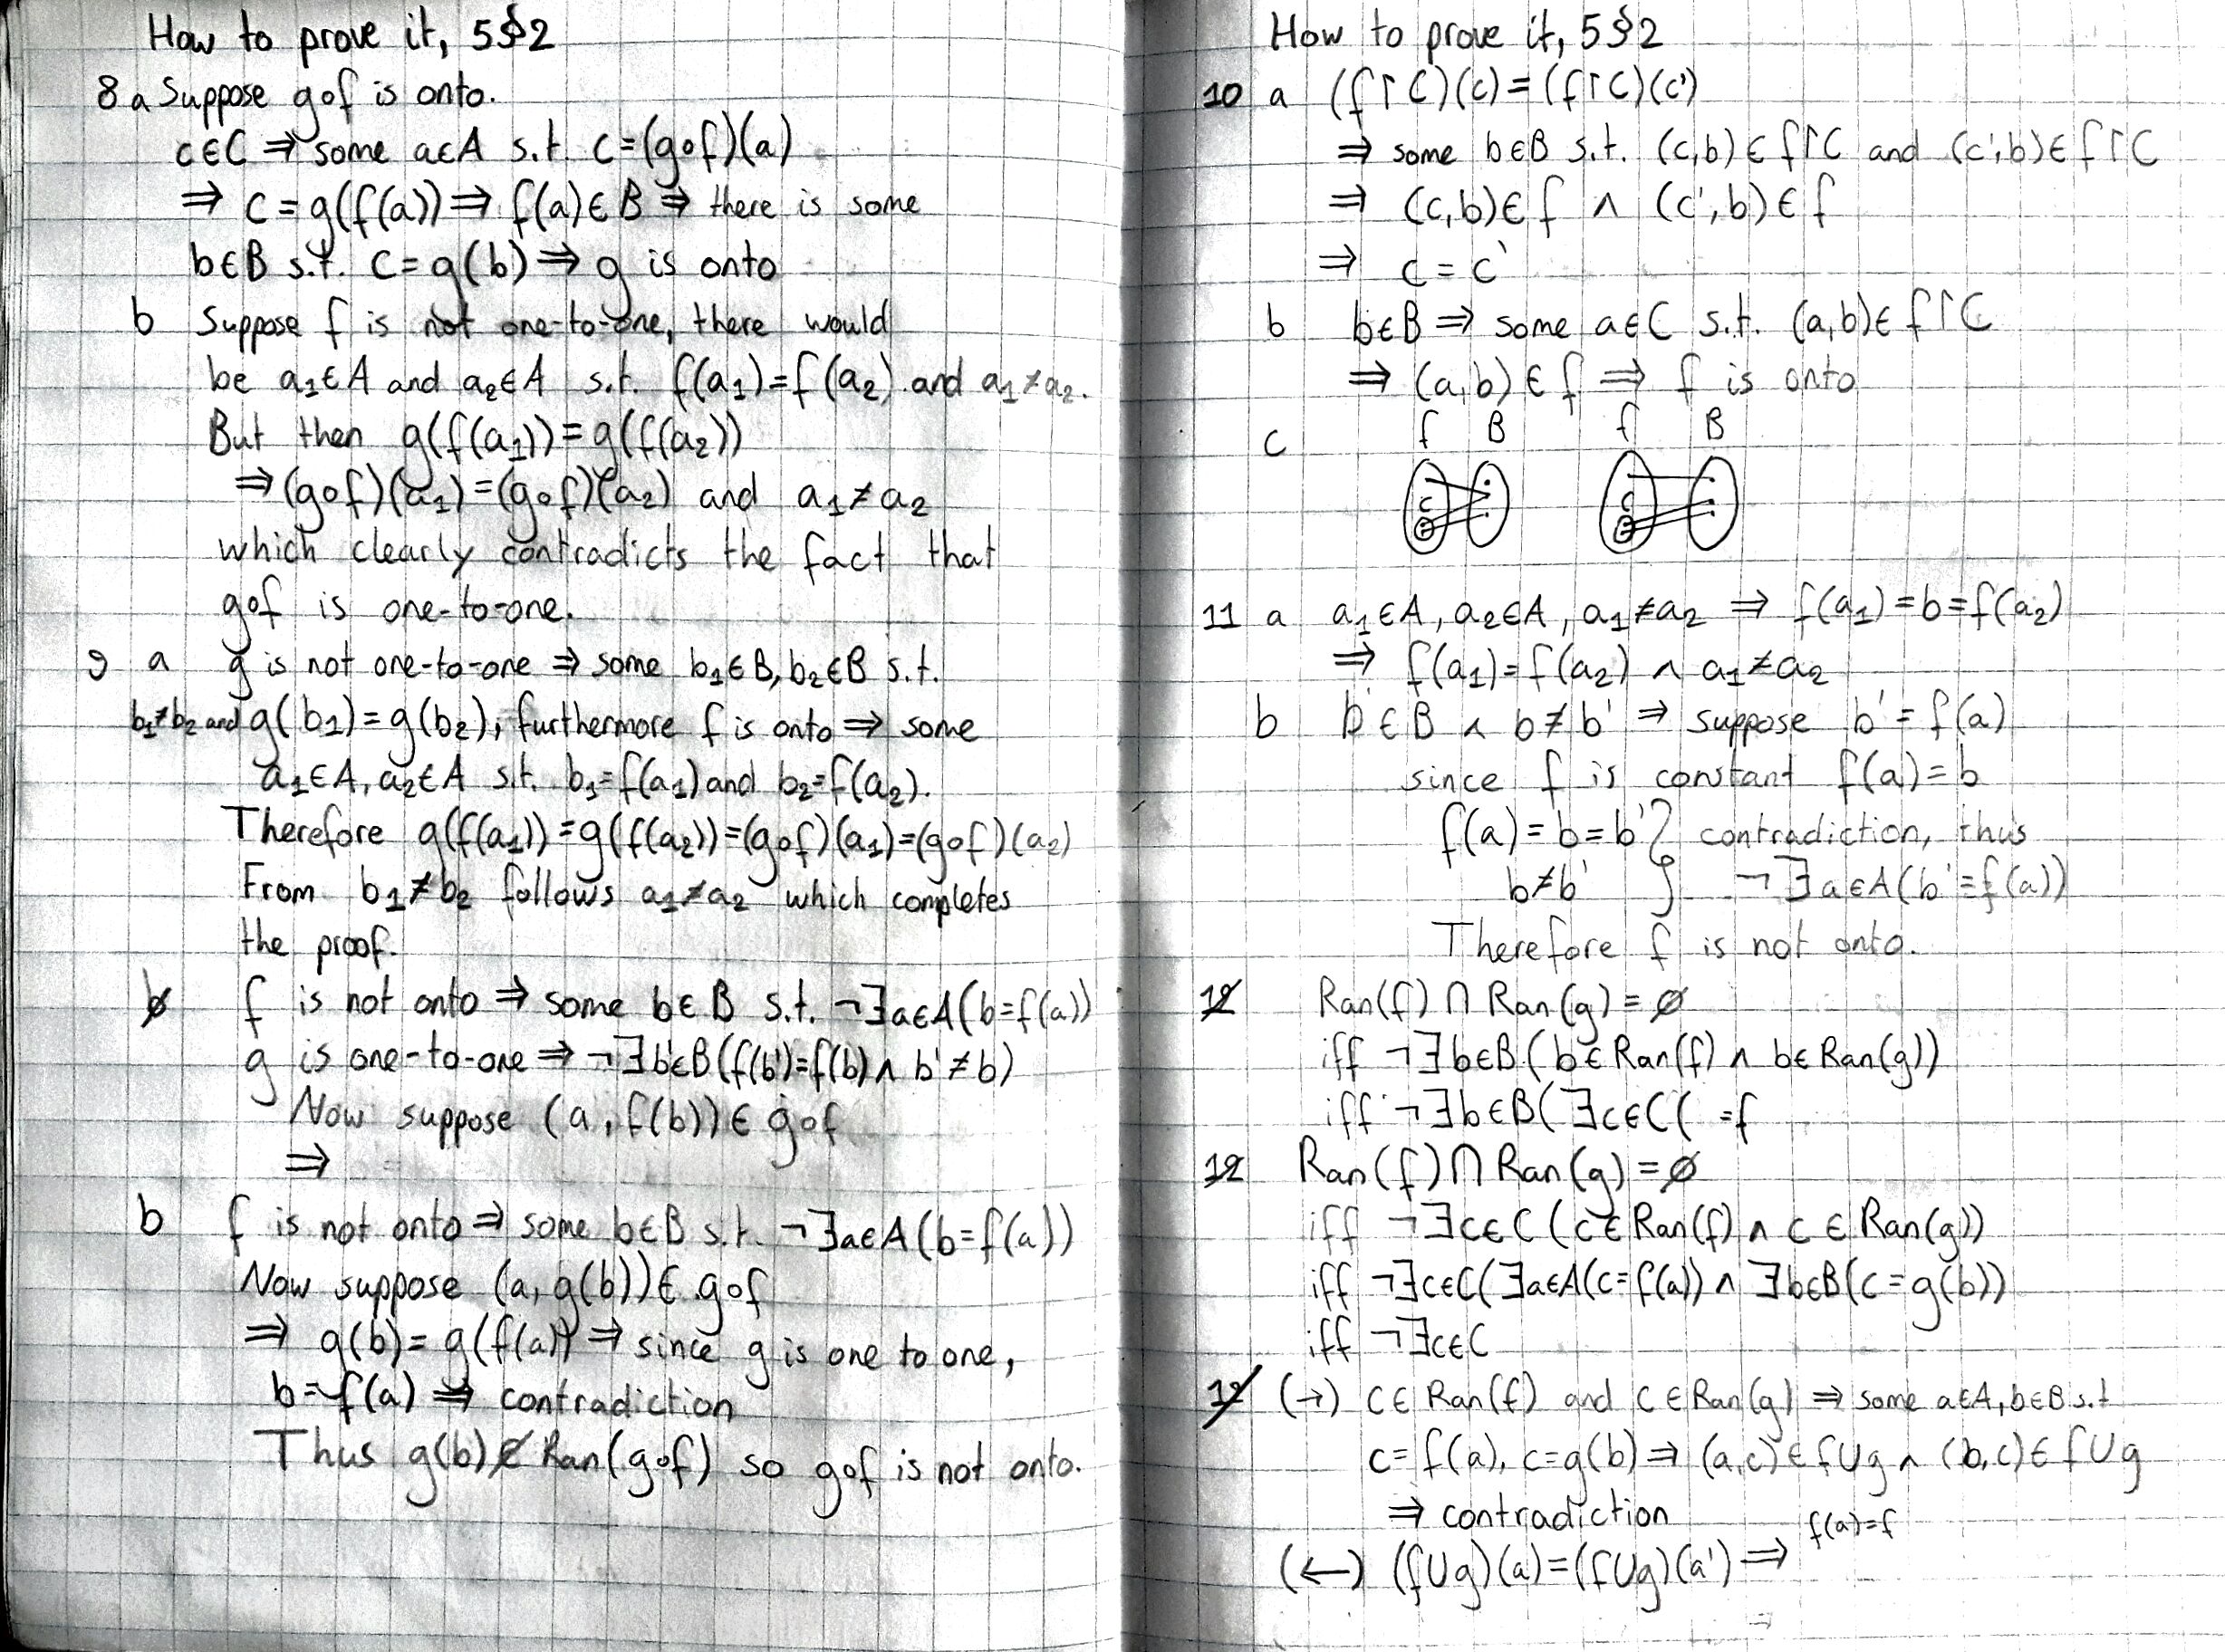 How to prove it, 5§2
8 a Suppose g∘f is onto.
c∈C ⇒ some a∈A s.t. c=(g∘f)(a)
⇒ c = g(f(a)) ⇒ f(a)∈B ⇒ there is some
b∈B s.t. c=g(b) ⇒ g is onto
b Suppose f is not one-to-one, there would
be a₁∈A and a₂∈A s.t. f(a₁)=f(a₂) and a₁≠a₂.
But then g(f(a₁))=g(f(a₂))
⇒ (g∘f)(a₁)=(g∘f)(a₂) and a₁≠a₂
which clearly contradicts the fact that
g∘f is one-to-one.
9 a g is not one-to-one ⇒ some b₁∈B, b₂∈B s.t.
b₁≠b₂ and g(b₁)=g(b₂), furthermore f is onto ⇒ some
a₁∈A, a₂∈A s.t. b₁=f(a₁) and b₂=f(a₂).
Therefore g(f(a₁))=g(f(a₂))=(g∘f)(a₁)=(g∘f)(a₂)
From b₁≠b₂ follows a₁≠a₂ which completes
the proof.
b f is not onto ⇒ some b∈B s.t. ¬∃a∈A(b=f(a))
g is one-to-one ⇒ ¬∃b'∈B(f(b')=f(b) ∧ b'≠b)
Now suppose (a, f(b))∈ g∘f
⇒
b f is not onto ⇒ some b∈B s.t. ¬∃a∈A(b=f(a))
Now suppose (a, g(b))∈ g∘f
⇒ g(b)= g(f(a)) ⇒ since g is one to one,
b=f(a) ⇒ contradiction
Thus g(b)∉Ran(g∘f) so g∘f is not onto.
How to prove it, 5§2
10 a (f↾C)(c)=(f↾C)(c')
⇒ some b∈B s.t. (c,b)∈f↾C and (c',b)∈f↾C
⇒ (c,b)∈f ∧ (c',b)∈f
⇒ c=c'
b b∈B ⇒ some a∈C s.t. (a,b)∈f↾C
⇒ (a,b)∈f ⇒ f is onto
c f B f B
C C
11 a a₁∈A, a₂∈A, a₁≠a₂ ⇒ f(a₁)=b=f(a₂)
⇒ f(a₁)=f(a₂) ∧ a₁≠a₂
b b'∈B ∧ b≠b' ⇒ suppose b'=f(a)
since f is constant f(a)=b
f(a)=b=b' } contradiction, thus
b≠b' } ¬∃a∈A(b'=f(a))
Therefore f is not onto.
12 Ran(f)∩Ran(g)=∅
iff ¬∃b∈B(b∈Ran(f) ∧ b∈Ran(g))
iff ¬∃b∈B(∃c∈C( =f
12 Ran(f)∩Ran(g)=∅
iff ¬∃c∈C(c∈Ran(f) ∧ c∈Ran(g))
iff ¬∃c∈C(∃a∈A(c=f(a)) ∧ ∃b∈B(c=g(b))
iff ¬∃c∈C
12 (→) c∈Ran(f) and c∈Ran(g) ⇒ some a∈A, b∈B s.t
c=f(a), c=g(b) ⇒ (a,c)∈f∪g ∧ (b,c)∈f∪g
⇒ contradiction
(←) (f∪g)(a)=(f∪g)(a') ⇒ f(a)=f